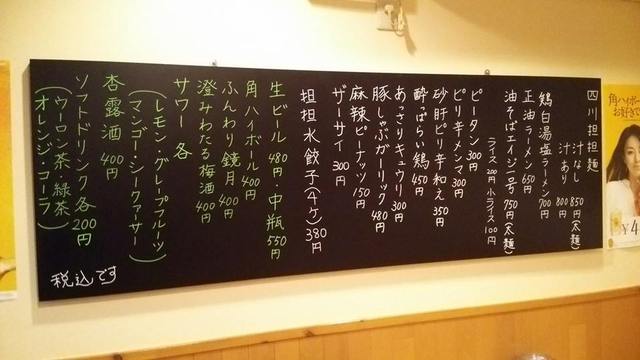 四川担担麺
汁なし 850円(太麺)
汁あり 800円
鶏白湯塩ラーメン 700円
正油ラーメン 650円
油そばエイジ一号 750円(太麺)
ライス 200円 小ライス 100円
ピータン 300円
ピリ辛メンマ 300円
砂肝ピリ辛和え 350円
酔っぱらい鶏 450円
あっさりキュウリ 300円
豚しゃぶガーリック 480円
麻辣ピーナッツ 150円
ザーサイ 300円
担担水餃子(4ケ) 380円
生ビール 480円・中瓶 550円
角ハイボール 400円
ふんわり鏡月 400円
澄みわたる梅酒 400円
サワー 各
(レモン・グレープフルーツ
マンゴー・シークァサー)
杏露酒 400円
ソフトドリンク各 200円
(ウーロン茶・緑茶
オレンジ・コーラ)
税込です
角ハイボール
お好きで
¥4